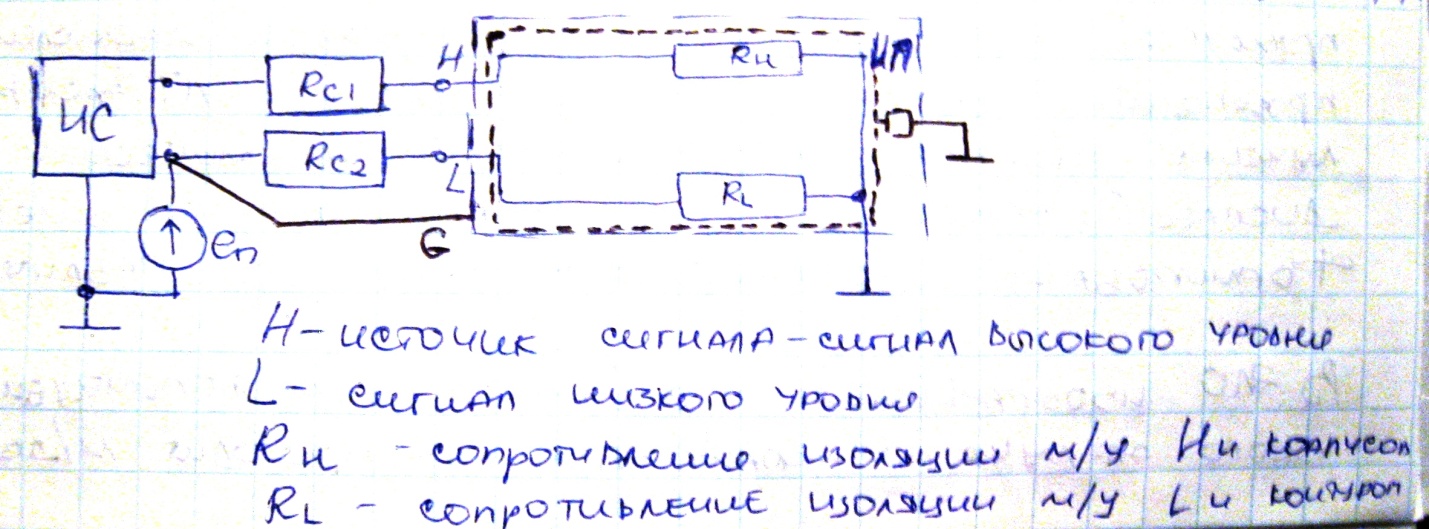 ИС
Rc1
Rc2
H
L
eп
G
Rн
RL
ИП
H – источник сигнала – сигнал высокого уровня
L – сигнал низкого уровня
Rн – сопротивление изоляции м/у H и корпусом
RL – сопротивление изоляции м/у L и контуром